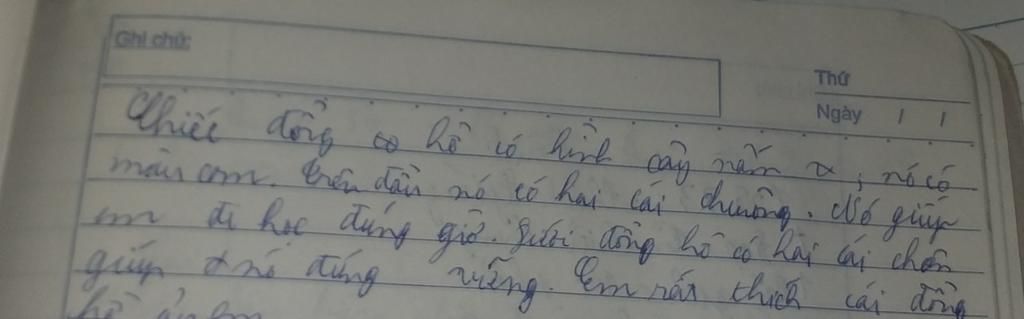 Ghi chú:
Thứ
Ngày / /
Chiếc đồng hồ có hình cây nấm, nó có
màu cam. Trên đầu nó có hai cái chuông. Nó giúp
em đi học đúng giờ. Dưới đồng hồ có hai cái chân
giúp nó đứng vững. Em rất thích cái đồng
hồ